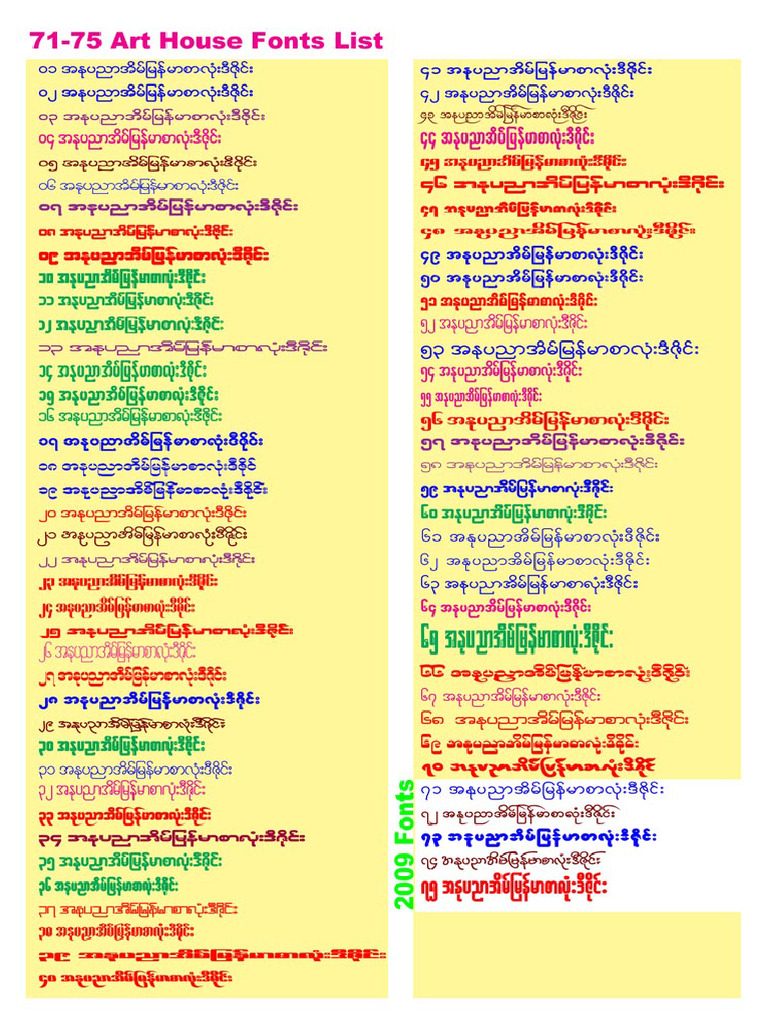 71-75 Art House Fonts List
၀၁ အနုပညာအိမ်မြန်မာစာလုံးဒီဇိုင်း
၀၂ အနုပညာအိမ်မြန်မာစာလုံးဒီဇိုင်း
၀၃ အနုပညာအိမ်မြန်မာစာလုံးဒီဇိုင်း
၀၄ အနုပညာအိမ်မြန်မာစာလုံးဒီဇိုင်း
၀၅ အနုပညာအိမ်မြန်မာစာလုံးဒီဇိုင်း
၀၆ အနုပညာအိမ်မြန်မာစာလုံးဒီဇိုင်း
၀၇ အနုပညာအိမ်မြန်မာစာလုံးဒီဇိုင်း
၀၈ အနုပညာအိမ်မြန်မာစာလုံးဒီဇိုင်း
၀၉ အနုပညာအိမ်မြန်မာစာလုံးဒီဇိုင်း
၁၀ အနုပညာအိမ်မြန်မာစာလုံးဒီဇိုင်း
၁၁ အနုပညာအိမ်မြန်မာစာလုံးဒီဇိုင်း
၁၂ အနုပညာအိမ်မြန်မာစာလုံးဒီဇိုင်း
၁၃ အနုပညာအိမ်မြန်မာစာလုံးဒီဇိုင်း
၁၄ အနုပညာအိမ်မြန်မာစာလုံးဒီဇိုင်း
၁၅ အနုပညာအိမ်မြန်မာစာလုံးဒီဇိုင်း
၁၆ အနုပညာအိမ်မြန်မာစာလုံးဒီဇိုင်း
၁၇ အနုပညာအိမ်မြန်မာစာလုံးဒီဇိုင်း
၁၈ အနုပညာအိမ်မြန်မာစာလုံးဒီဇိုင်
၁၉ အနုပညာအိမ်မြန်မာစာလုံးဒီဇိုင်း
၂၀ အနုပညာအိမ်မြန်မာစာလုံးဒီဇိုင်း
၂၁ အနုပညာအိမ်မြန်မာစာလုံးဒီဇိုင်း
၂၂ အနုပညာအိမ်မြန်မာစာလုံးဒီဇိုင်း
၂၃ အနုပညာအိမ်မြန်မာစာလုံးဒီဇိုင်း
၂၄ အနုပညာအိမ်မြန်မာစာလုံးဒီဇိုင်း
၂၅ အနုပညာအိမ်မြန်မာစာလုံးဒီဇိုင်း
၂၆ အနုပညာအိမ်မြန်မာစာလုံးဒီဇိုင်း
၂၇ အနုပညာအိမ်မြန်မာစာလုံးဒီဇိုင်း
၂၈ အနုပညာအိမ်မြန်မာစာလုံးဒီဇိုင်း
၂၉ အနုပညာအိမ်မြန်မာစာလုံးဒီဇိုင်း
၃၀ အနုပညာအိမ်မြန်မာစာလုံးဒီဇိုင်း
၃၁ အနုပညာအိမ်မြန်မာစာလုံးဒီဇိုင်း
၃၂ အနုပညာအိမ်မြန်မာစာလုံးဒီဇိုင်း
၃၃ အနုပညာအိမ်မြန်မာစာလုံးဒီဇိုင်း
၃၄ အနုပညာအိမ်မြန်မာစာလုံးဒီဇိုင်း
၃၅ အနုပညာအိမ်မြန်မာစာလုံးဒီဇိုင်း
၃၆ အနုပညာအိမ်မြန်မာစာလုံးဒီဇိုင်း
၃၇ အနုပညာအိမ်မြန်မာစာလုံးဒီဇိုင်း
၃၈ အနုပညာအိမ်မြန်မာစာလုံးဒီဇိုင်း
၃၉ အနုပညာအိမ်မြန်မာစာလုံးဒီဇိုင်း
၄၀ အနုပညာအိမ်မြန်မာစာလုံးဒီဇိုင်း
၄၁ အနုပညာအိမ်မြန်မာစာလုံးဒီဇိုင်း
၄၂ အနုပညာအိမ်မြန်မာစာလုံးဒီဇိုင်း
၄၃ အနုပညာအိမ်မြန်မာစာလုံးဒီဇိုင်း
၄၄ အနုပညာအိမ်မြန်မာစာလုံးဒီဇိုင်း
၄၅ အနုပညာအိမ်မြန်မာစာလုံးဒီဇိုင်း
၄၆ အနုပညာအိမ်မြန်မာစာလုံးဒီဇိုင်း
၄၇ အနုပညာအိမ်မြန်မာစာလုံးဒီဇိုင်း
၄၈ အနုပညာအိမ်မြန်မာစာလုံးဒီဇိုင်း
၄၉ အနုပညာအိမ်မြန်မာစာလုံးဒီဇိုင်း
၅၀ အနုပညာအိမ်မြန်မာစာလုံးဒီဇိုင်း
၅၁ အနုပညာအိမ်မြန်မာစာလုံးဒီဇိုင်း
၅၂ အနုပညာအိမ်မြန်မာစာလုံးဒီဇိုင်း
၅၃ အနုပညာအိမ်မြန်မာစာလုံးဒီဇိုင်း
၅၄ အနုပညာအိမ်မြန်မာစာလုံးဒီဇိုင်း
၅၅ အနုပညာအိမ်မြန်မာစာလုံးဒီဇိုင်း
၅၆ အနုပညာအိမ်မြန်မာစာလုံးဒီဇိုင်း
၅၇ အနုပညာအိမ်မြန်မာစာလုံးဒီဇိုင်း
၅၈ အနုပညာအိမ်မြန်မာစာလုံးဒီဇိုင်း
၅၉ အနုပညာအိမ်မြန်မာစာလုံးဒီဇိုင်း
၆၀ အနုပညာအိမ်မြန်မာစာလုံးဒီဇိုင်း
၆၁ အနုပညာအိမ်မြန်မာစာလုံးဒီဇိုင်း
၆၂ အနုပညာအိမ်မြန်မာစာလုံးဒီဇိုင်း
၆၃ အနုပညာအိမ်မြန်မာစာလုံးဒီဇိုင်း
၆၄ အနုပညာအိမ်မြန်မာစာလုံးဒီဇိုင်း
၆၅ အနုပညာအိမ်မြန်မာစာလုံးဒီဇိုင်း
၆၆ အနုပညာအိမ်မြန်မာစာလုံးဒီဇိုင်း
၆၇ အနုပညာအိမ်မြန်မာစာလုံးဒီဇိုင်း
၆၈ အနုပညာအိမ်မြန်မာစာလုံးဒီဇိုင်း
၆၉ အနုပညာအိမ်မြန်မာစာလုံးဒီဇိုင်း
၇၀ အနုပညာအိမ်မြန်မာစာလုံးဒီဇိုင်
2009 Fonts
၇၁ အနုပညာအိမ်မြန်မာစာလုံးဒီဇိုင်း
၇၂ အနုပညာအိမ်မြန်မာစာလုံးဒီဇိုင်း
၇၃ အနုပညာအိမ်မြန်မာစာလုံးဒီဇိုင်း
၇၄ အနုပညာအိမ်မြန်မာစာလုံးဒီဇိုင်း
၇၅ အနုပညာအိမ်မြန်မာစာလုံးဒီဇိုင်း